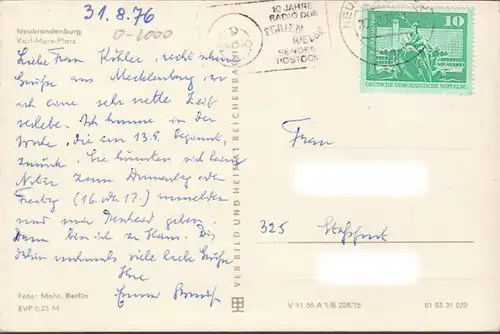 31.8.76
0-1000
Neubrandenburg
Karl-Marx-Platz
Liebe Frau Köhler, recht schöne
Grüße aus Mecklenburg, wo
ich eine sehr nette Zeit
verlebe. Ich komme in der
Woche, die am 13.9. beginnt,
zurück. Sie könnten sich
zum Donnerstag oder
Freitag (16. oder 17.) anmelden
und mir geben.
Dann bin ich zu Haus. Bis
dahin nochmals viele liebe Grüße
Ihre
Foto: Mohr, Berlin
EVP 0,25 M
VEB BILD UND HEIMAT REICHENBACH
10 JAHRE
RADIO DDR
FERIEN
WELLE
SENDER
ROSTOCK
10
DEUTSCHE DEMOKRATISCHE REPUBLIK
Frau
325
V 11 50 A 1/B 228/75
01 03 31 032